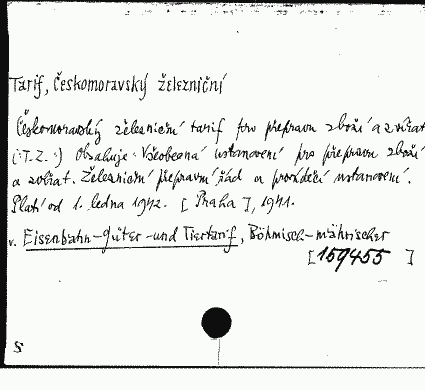 Tarif, Českomoravský železniční
Českomoravský železniční tarif pro přepravu zboží a zvířat
(:T.Z.:) Obsahuje: Všeobecná ustanovení pro přepravu zboží
a zvířat. Železniční přepravní řád a prováděcí ustanovení.
Platí od 1. ledna 1942. [Praha], 1941.
v. Eisenbahn-Güter-und Tiertarif, Böhmisch-mährischer
[159455]
S